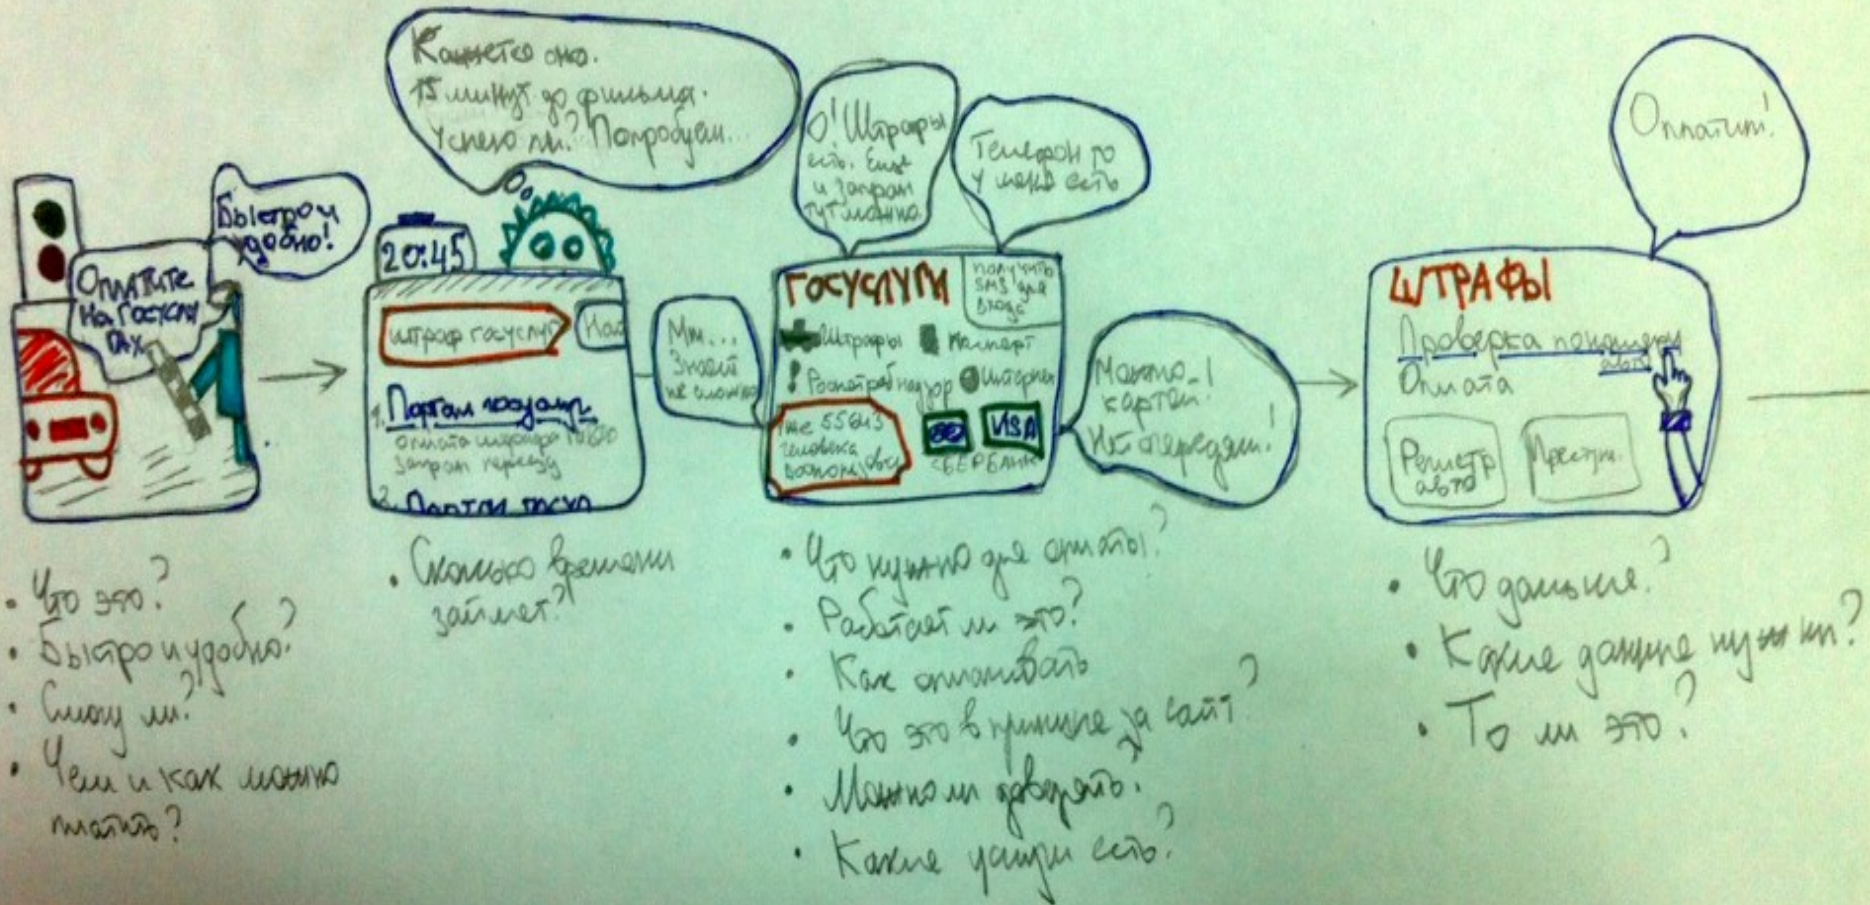 Быстро и
удобно!
Оплатите
на госуслу
гах
Кажется оно.
15 минут до фильма.
Успею ли? Попробуем...
20:45
штраф госуслуг
Най
1. Портал госуслуг
оплата штрафа ГИБДД
запрет переезд
2. Портал госул
О! Штрафы
есть. Еще
и
тут можно
Телефон то
у меня есть
Мм...
Значит
не сложно
ГОСУСЛУГИ
получить
SMS для
входа
Штрафы
Паспорт
Роспотребнадзор
Уже 55643
человека
VISA
СБЕРБАНК
Можно
картой!
Оплатить!
ШТРАФЫ
Проверка по номеру
авто
Оплата
Регистр
авто
• Что это?
• Быстро и удобно?
• Смогу ли?
• Чем и как можно
платить?
• Сколько времени
займет?
• Что нужно для оплаты?
• Работает ли это?
• Как оплачивать
• Что это в принципе за сайт?
• Можно ли доверять?
• Какие услуги есть?
• Что дальше?
• Какие данные нужны?
• То ли это?